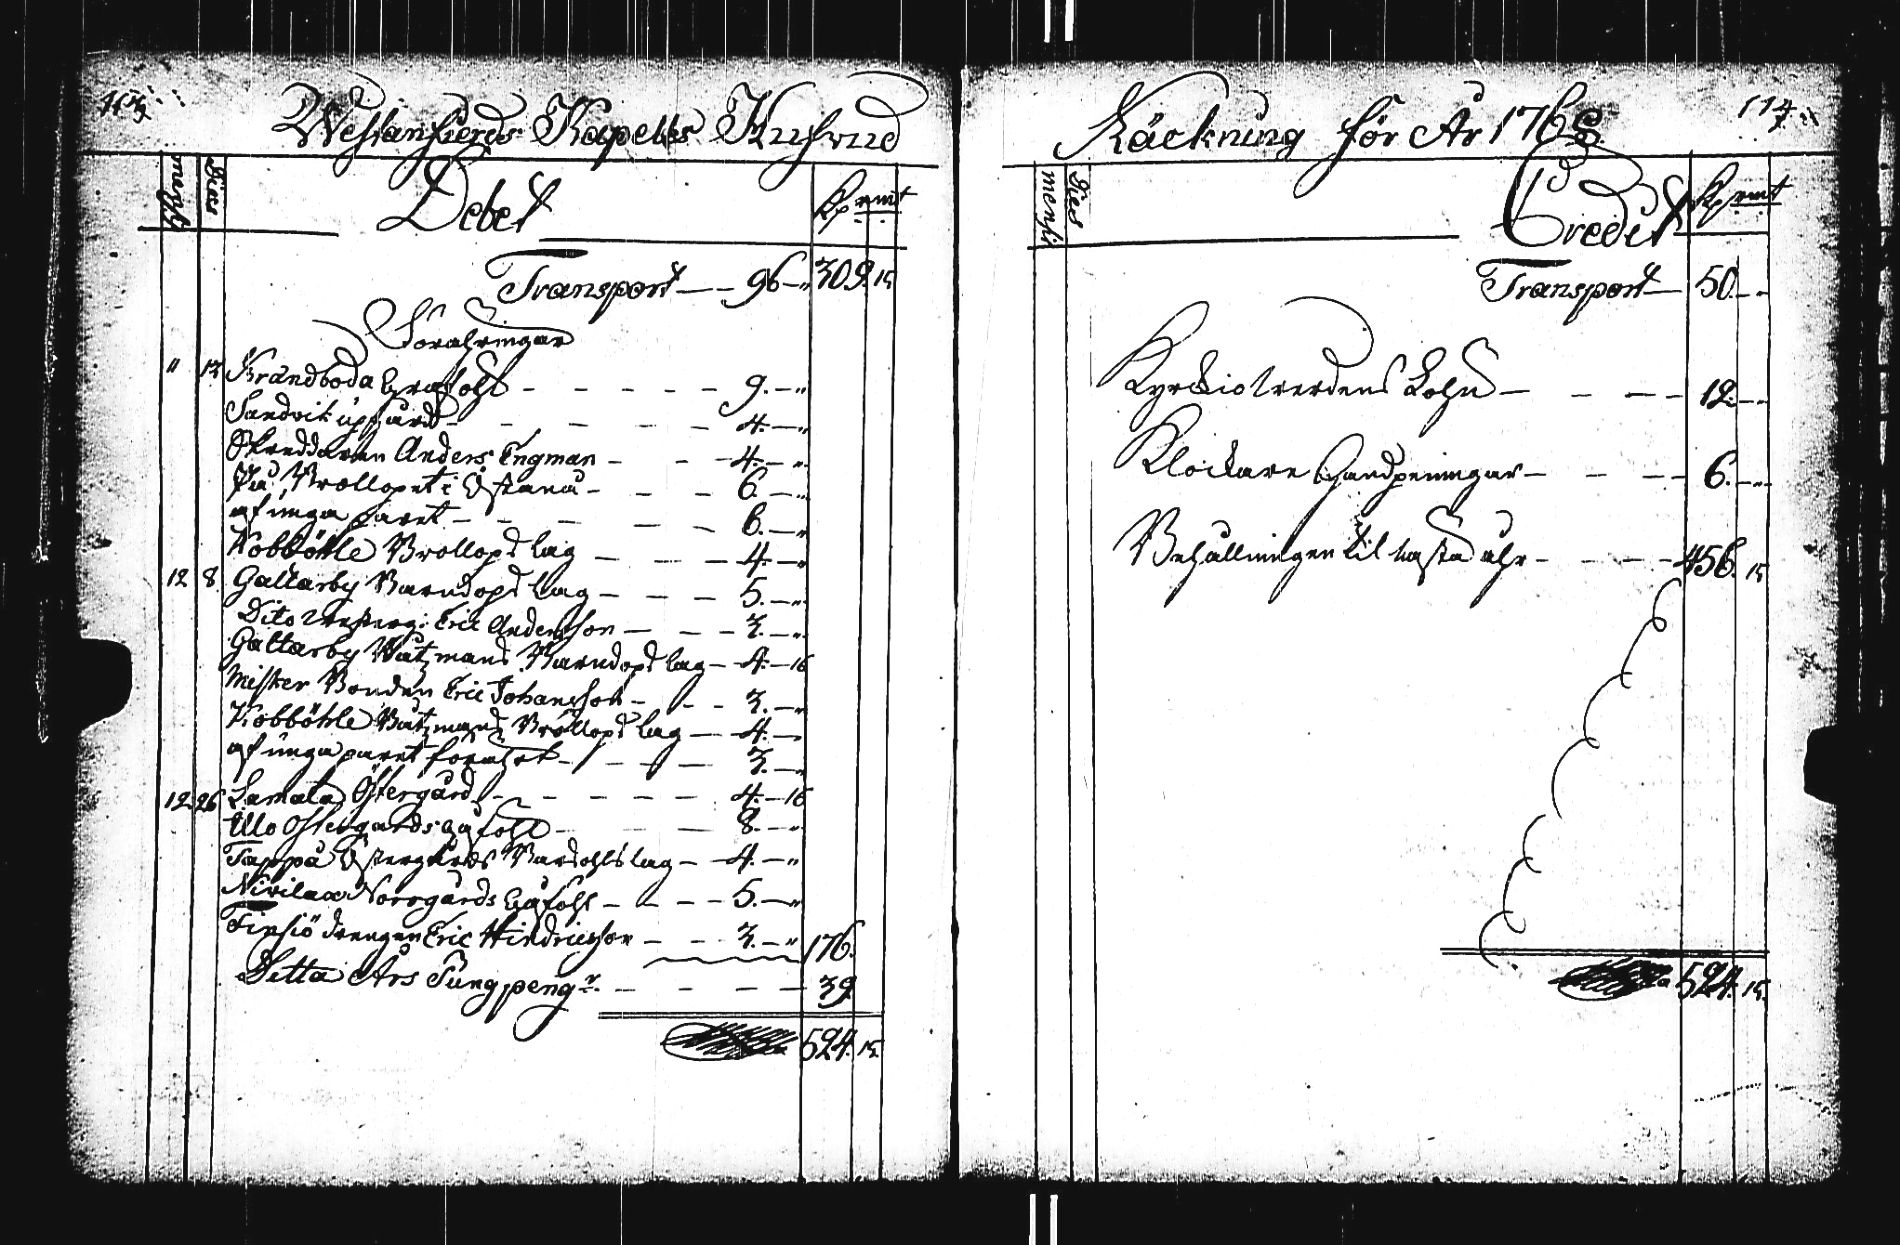 113
Westanfierds Kapells Kyrkiud
mensis Dies
Debet
Kp rmt
Transport — 96 — " 309. 15
Föräringar
" 13 Brändboda Grafföhl — 9. — "
Sandvik uppård — 4. — "
Skreddaren Anders Engman — 4. — "
På Bröllopet i Östanå — 6. — "
af unga paret — 6. — "
Kobböhle Bröllops lag — 4. — "
12 8 Galtarby Barndops lag — 5. — "
Dito Eric Andersson — 3. — "
Galtarby Båtzmans Barndops lag — 4. — 16
Mister Bonden Eric Johansson — 3. — "
Kobböhle Båtzmans Bröllops lag — 4. —
af unga paret förährt — 3. — "
12 26 Lamala Östergård — 4. — 16
Illo Östergårds Gräföhl — 8. — "
Tappo Östergårds Barsohls lag — 4. — "
Nivilax Norrgårds Gräföhl — 5. — "
Finsiö drengen Eric Hindricsson — 3. — " 176.
Detta Års Pungpeng:r — 39
524. 15
114
Räckning för År 1768
mensis Dies
Credit
Kp rmt
Transport — 50. — "
Kyrckiowerdens Löhn — 12. — "
Klockare Handpenningar — 6. — "
Behållningen til nästa åhr — 456. 15
524. 15.